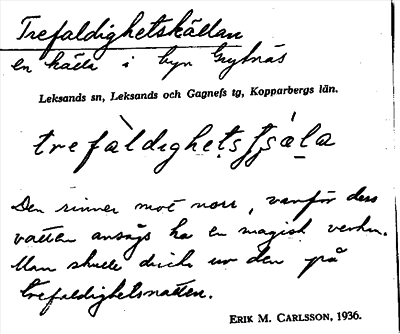 Trefaldighetskällan
en källa i byn Grytnäs
Leksands sn, Leksands och Gagnefs tg, Kopparbergs län.
trefàldighetsʃʃǝ̣la
Den rinner mot norr, varför dess
vatten ansågs ha en magisk verkan.
Man skulle dricka ur den på
trefaldighetsnatten.
ERIK M. CARLSSON, 1936.